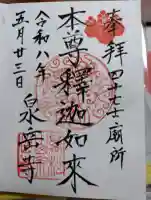 奉拝
四十七士廟所
本尊釋迦如來
令和八年
五月廿三日
泉岳寺